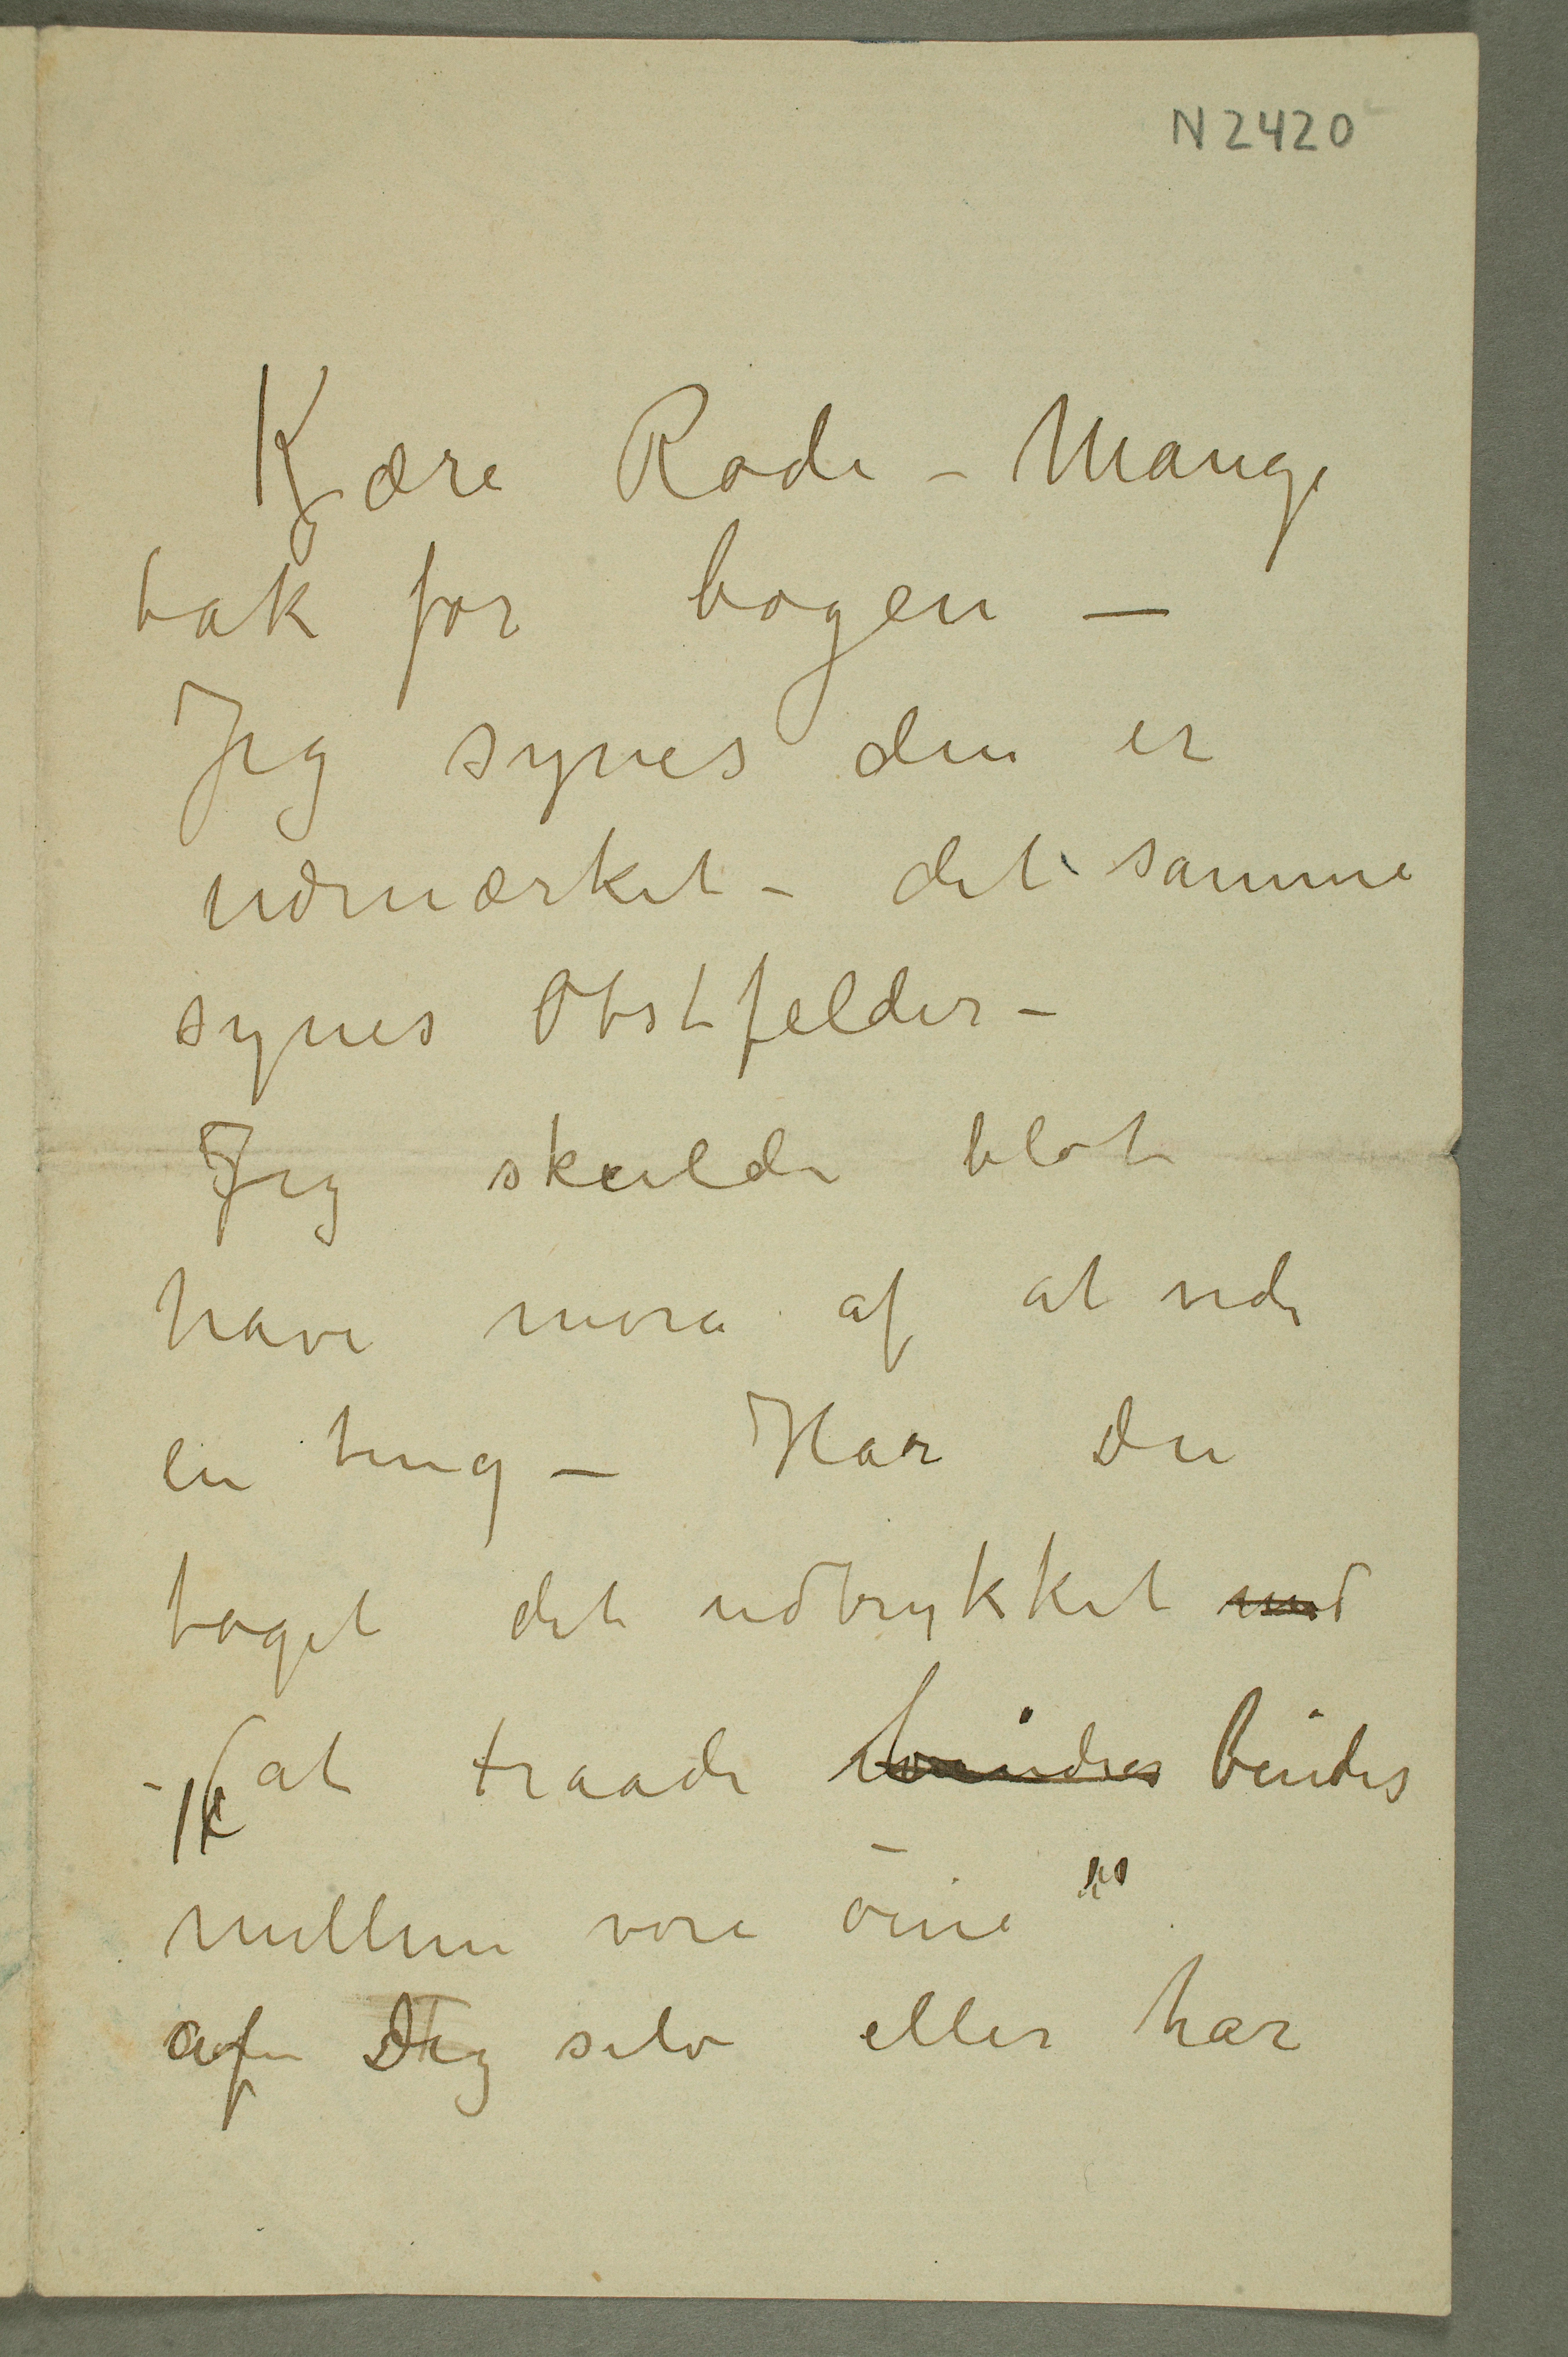 N 2420
Kjære Rode – Mange
tak for bogen –
Jeg synes den er
udmærket – det samme
synes Obstfelder –
Jeg skulde blot
have mora af at vide
en ting – Har Du
taget det udtrykket med
– at traade bindes
mellem vore öine"
af Dig selv eller har